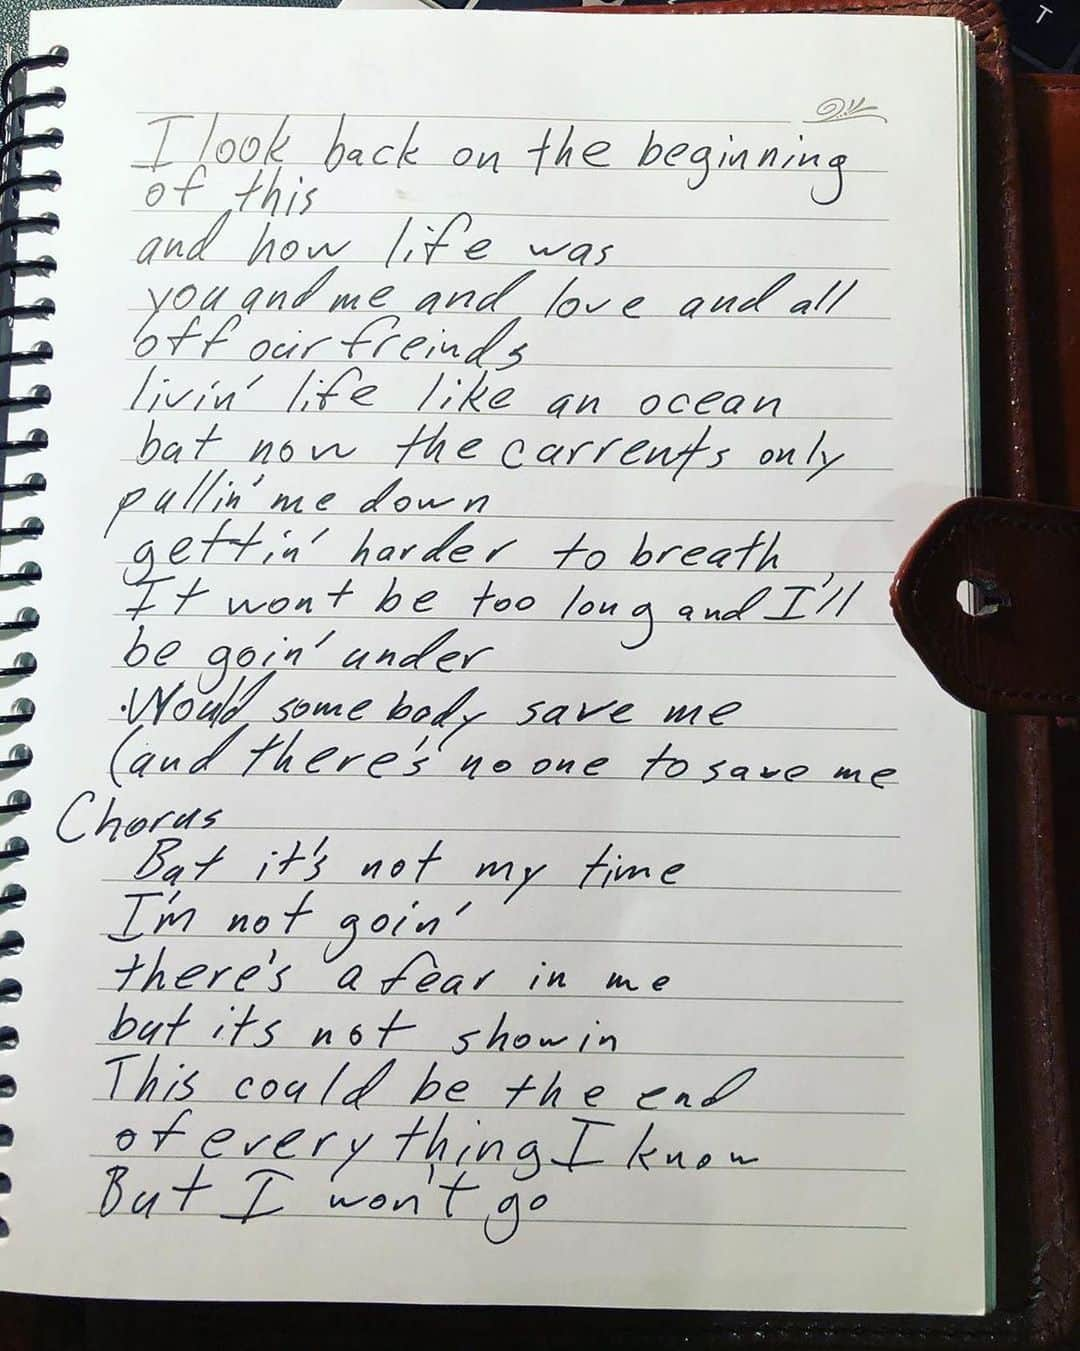 I look back on the beginning
of this
and how life was
you and me and love and all
off our freinds
livin' life like an ocean
but now the currents only
pullin' me down
gettin' harder to breath
It won't be too long and I'll
be goin' under
Would somebody save me
(and there's no one to save me
Chorus
But it's not my time
I'm not goin'
there's a fear in me
but its not showin
This could be the end
of everything I know
But I won't go
T